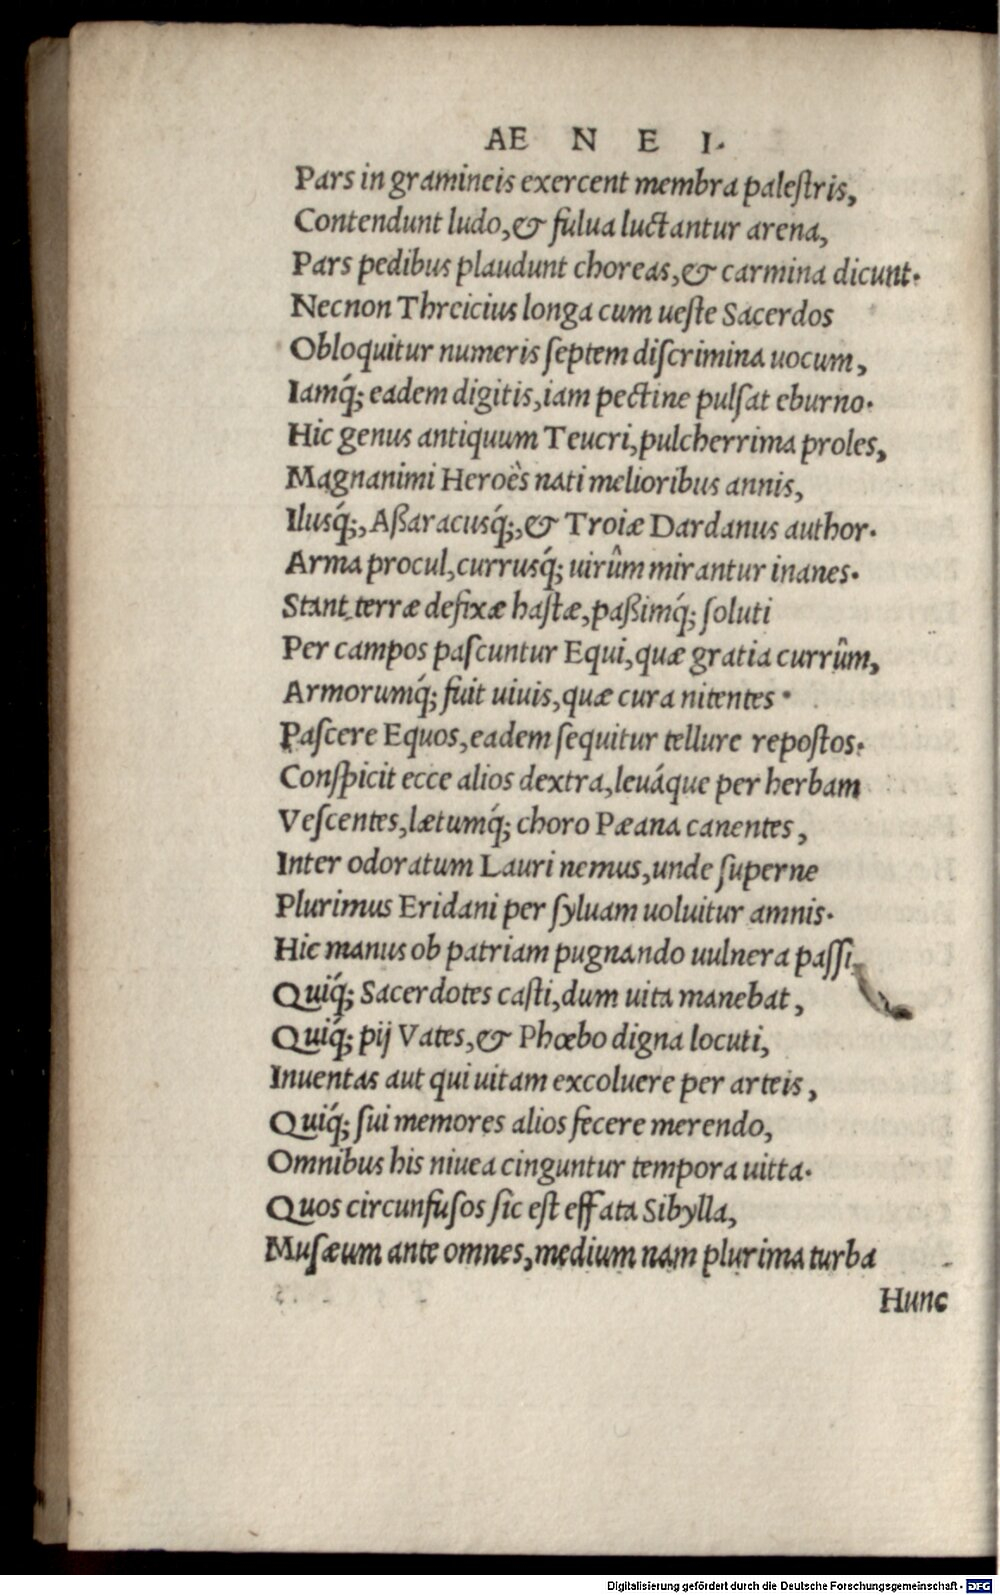 AE N E I.
Pars in gramineis exercent membra palestris,
Contendunt ludo, & fulua luctantur arena,
Pars pedibus plaudunt choreas, & carmina dicunt.
Necnon Threicius longa cum ueste Sacerdos
Obloquitur numeris septem discrimina uocum,
Iamq́; eadem digitis, iam pectine pulsat eburno.
Hic genus antiquum Teucri, pulcherrima proles,
Magnanimi Heroës nati melioribus annis,
Ilusq́;, Aßaracusq́;, & Troiæ Dardanus author.
Arma procul, currusq́; uirûm mirantur inanes.
Stant terræ defixæ hastæ, paßimq́; soluti
Per campos pascuntur Equi, quæ gratia currûm,
Armorumq́; fuit uiuis, quæ cura nitentes
Pascere Equos, eadem sequitur tellure repostos.
Conspicit ecce alios dextra, leuáque per herbam
Vescentes, lætumq́; choro Pæana canentes,
Inter odoratum Lauri nemus, unde superne
Plurimus Eridani per syluam uoluitur amnis.
Hic manus ob patriam pugnando uulnera passi,
Quiq́; Sacerdotes casti, dum uita manebat,
Quiq́; pij Vates, & Phœbo digna locuti,
Inuentas aut qui uitam excoluere per arteis,
Quiq́; sui memores alios fecere merendo,
Omnibus his niuea cinguntur tempora uitta.
Quos circunfusos sic est effata Sibylla,
Musæum ante omnes, medium nam plurima turba
Hunc
Digitalisierung gefördert durch die Deutsche Forschungsgemeinschaft - DFG